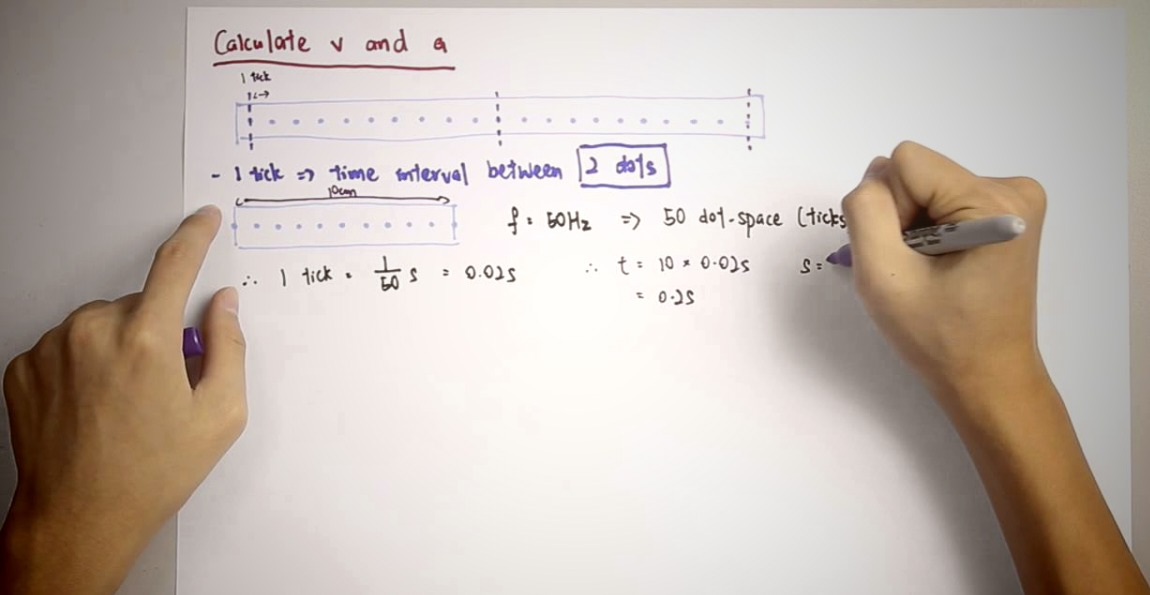 Calculate v and a
1 tick
- 1 tick => time interval between 2 dots
10cm
f = 50Hz => 50 dot-space (ticks
∴ 1 tick = 1/50 s = 0.02s ∴ t = 10 × 0.02s s =
= 0.2s